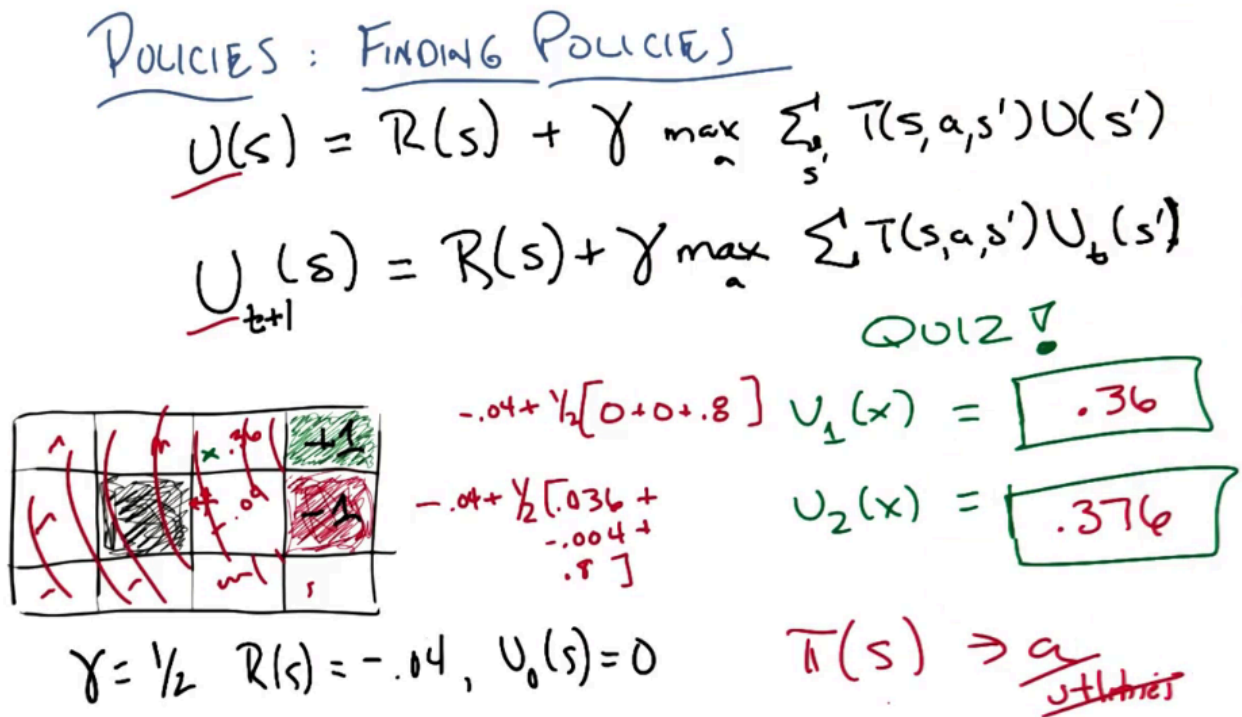 POLICIES : FINDING POLICIES
U(s) = R(s) + γ max_a Σ_s' T(s,a,s')U(s')
U_t+1(s) = R(s) + γ max_a Σ T(s,a,s')U_t(s')
QUIZ!
-.04 + 1/2[0+0+.8] U_1(x) = .36
x .36 +1
-.04 + 1/2[.036 + U_2(x) = .376
-.004 +
.8]
-.04 -1
γ = 1/2 R(s) = -.04, U_0(s) = 0
π(s) → a
utilities